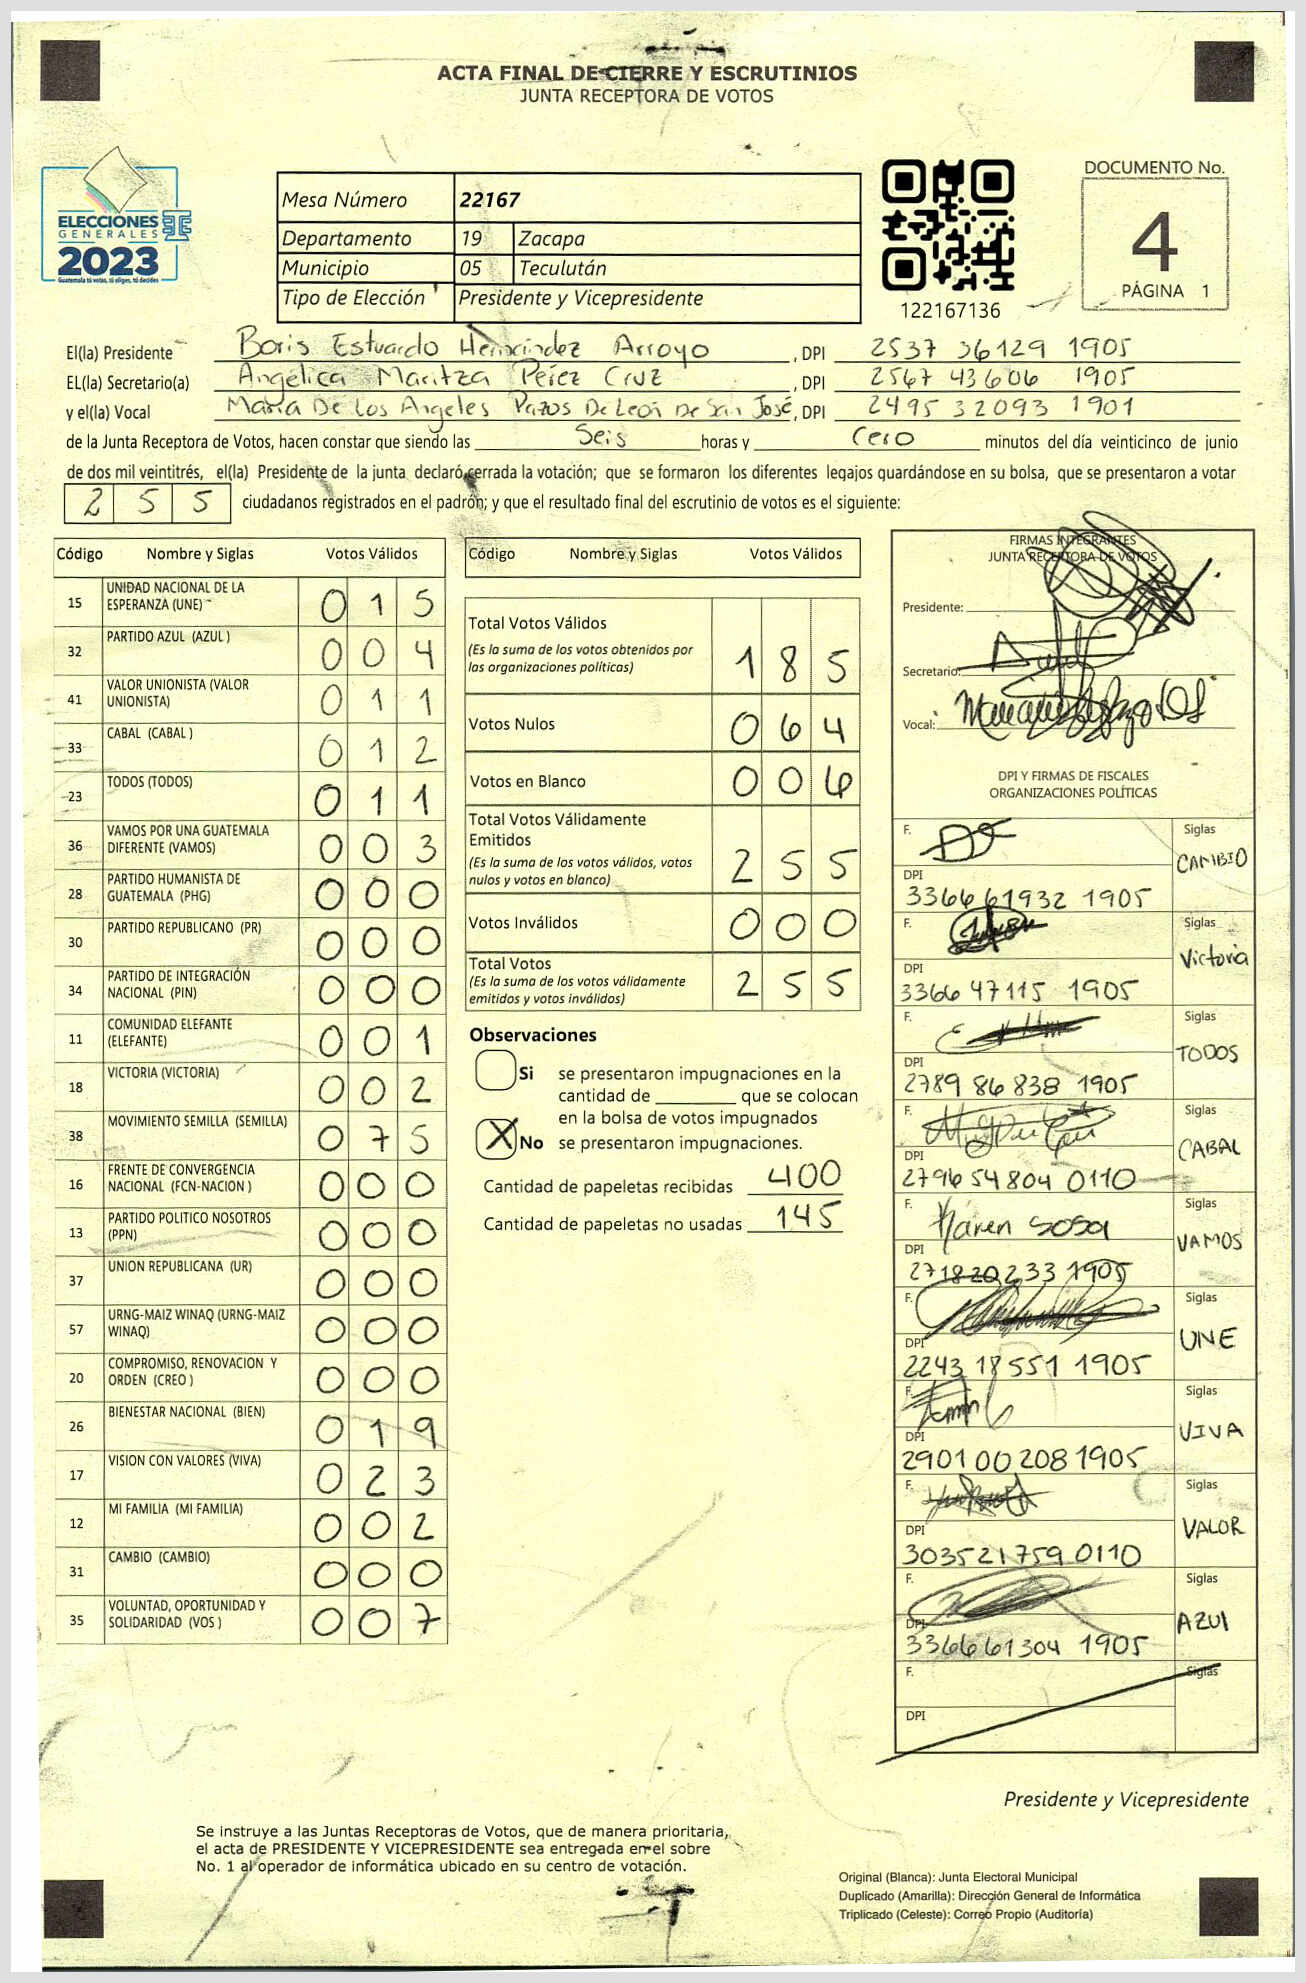 ACTA FINAL DE CIERRE Y ESCRUTINIOS
JUNTA RECEPTORA DE VOTOS
ELECCIONES
GENERALES
2023
Guatemala tú votas, tú eliges, tú decides
Mesa Número 22167
Departamento 19 Zacapa
Municipio 05 Teculután
Tipo de Elección Presidente y Vicepresidente
122167136
DOCUMENTO No.
4
PÁGINA 1
El(la) Presidente Boris Estuardo Hernández Arroyo, DPI 2537 36129 1905
EL(la) Secretario(a) Angélica Maritza Pérez Cruz, DPI 2567 43606 1905
y el(la) Vocal María De Los Angeles Pazos De León De San José, DPI 2495 32093 1901
de la Junta Receptora de Votos, hacen constar que siendo las Seis horas y Cero minutos del día veinticinco de junio
de dos mil veintitrés, el(la) Presidente de la junta declaró cerrada la votación; que se formaron los diferentes legajos guardándose en su bolsa, que se presentaron a votar
255 ciudadanos registrados en el padrón; y que el resultado final del escrutinio de votos es el siguiente:
Código Nombre y Siglas Votos Válidos
15 UNIDAD NACIONAL DE LA ESPERANZA (UNE) 015
32 PARTIDO AZUL (AZUL ) 004
41 VALOR UNIONISTA (VALOR UNIONISTA) 011
33 CABAL (CABAL ) 012
23 TODOS (TODOS) 011
36 VAMOS POR UNA GUATEMALA DIFERENTE (VAMOS) 003
28 PARTIDO HUMANISTA DE GUATEMALA (PHG) 000
30 PARTIDO REPUBLICANO (PR) 000
34 PARTIDO DE INTEGRACIÓN NACIONAL (PIN) 000
11 COMUNIDAD ELEFANTE (ELEFANTE) 001
18 VICTORIA (VICTORIA) 002
38 MOVIMIENTO SEMILLA (SEMILLA) 075
16 FRENTE DE CONVERGENCIA NACIONAL (FCN-NACION ) 000
13 PARTIDO POLITICO NOSOTROS (PPN) 000
37 UNION REPUBLICANA (UR) 000
57 URNG-MAIZ WINAQ (URNG-MAIZ WINAQ) 000
20 COMPROMISO, RENOVACION Y ORDEN (CREO ) 000
26 BIENESTAR NACIONAL (BIEN) 019
17 VISION CON VALORES (VIVA) 023
12 MI FAMILIA (MI FAMILIA) 002
31 CAMBIO (CAMBIO) 000
35 VOLUNTAD, OPORTUNIDAD Y SOLIDARIDAD (VOS ) 007
Código Nombre y Siglas Votos Válidos
Total Votos Válidos
(Es la suma de los votos obtenidos por
las organizaciones políticas) 185
Votos Nulos 064
Votos en Blanco 006
Total Votos Válidamente
Emitidos
(Es la suma de los votos válidos, votos
nulos y votos en blanco) 255
Votos Inválidos 000
Total Votos
(Es la suma de los votos válidamente
emitidos y votos inválidos) 255
Observaciones
Si se presentaron impugnaciones en la
cantidad de ________ que se colocan
en la bolsa de votos impugnados
X No se presentaron impugnaciones.
Cantidad de papeletas recibidas 400
Cantidad de papeletas no usadas 145
FIRMAS INTEGRANTES
JUNTA RECEPTORA DE VOTOS
Presidente:
Secretario:
Vocal:
DPI Y FIRMAS DE FISCALES
ORGANIZACIONES POLÍTICAS
F. Siglas CAMBIO
DPI 3366 61932 1905
F. Siglas Victoria
DPI 3366 47115 1905
F. Siglas TODOS
DPI 2789 86 838 1905
F. Siglas CABAL
DPI 2796 54804 0110
F. Karen Sosa Siglas VAMOS
DPI 2718 20233 1905
F. Siglas UNE
DPI 2243 18 551 1905
F. Siglas VIVA
DPI 2901 00 208 1905
F. Siglas VALOR
DPI 3035 21759 0110
F. Siglas AZUl
DPI 3366 61304 1905
F. Siglas
DPI
Presidente y Vicepresidente
Se instruye a las Juntas Receptoras de Votos, que de manera prioritaria,
el acta de PRESIDENTE Y VICEPRESIDENTE sea entregada en el sobre
No. 1 al operador de informática ubicado en su centro de votación.
Original (Blanca): Junta Electoral Municipal
Duplicado (Amarilla): Dirección General de Informática
Triplicado (Celeste): Correo Propio (Auditoría)